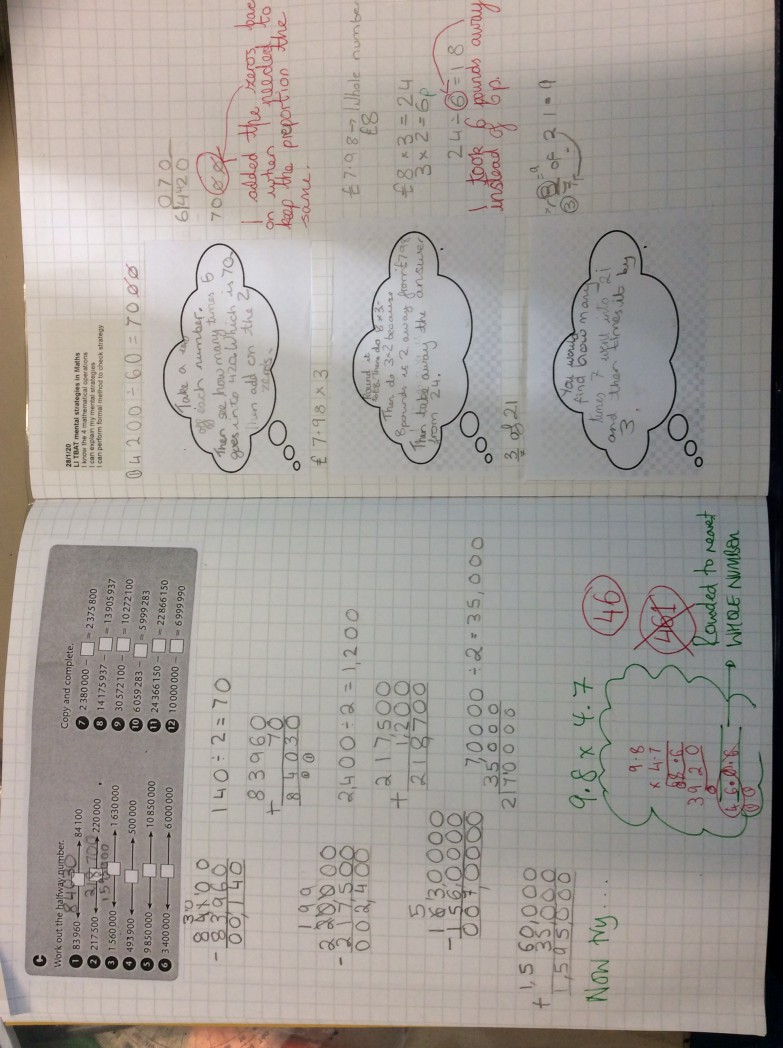 C
Work out the halfway number.
1 83 960 84 100
84030
2 217 500 220 000
218 700
3 1 560 000 1 630 000
4 493 900 500 000
5 9 850 000 10 850 000
6 3 400 000 6 000 000
Copy and complete.
7 2 380 000 − = 2 375 800
8 14 175 937 − = 13 905 937
9 30 572 100 − = 10 272 100
10 6 059 283 − = 5 999 283
11 24 366 150 − = 22 866 150
12 10 000 000 − = 6 999 990
- 83960
00,140
140 ÷ 2 = 70
83960
+ 70
84030
- 217,500
002,400
2,400 ÷ 2 = 1,200
217,500
+ 1,200
218,700
1630000
- 1560000
0070000
70000 ÷ 2 = 35,000
35000
2170000
+ 1,560,000
35,000
1,595,000
Now try....
9.8 x 4.7
9.8
x 4.7
3920
46
461
Rounded to nearest
WHOLE NUMBER
28/1/20
LI TBAT mental strategies in Maths
I know the 4 mathematical operations
I can explain my mental strategies
I can perform formal method to check strategy
4200 ÷ 60 = 7000
Take a
of each number.
Then see how many times 6
goes into 420. Which is 70
add on the 2
zeros.
070
6 4420
7000
I added the zeros back
on when needed to
keep the proportion the
same.
£7.98 x 3
Round it
Then do 3x2 because
8 pounds is 2 away from £7.98
Then take away the answer
from 24.
£7.98 → Whole number
£8
£8 x 3 = 24
3 x 2 = 6p
24 ÷ 6 = 18
I took 6 pounds away
instead of 6p.
3/7 of 21
You would
find how many
times 7 went into 21
and then times it by
3.
of 21 = 9